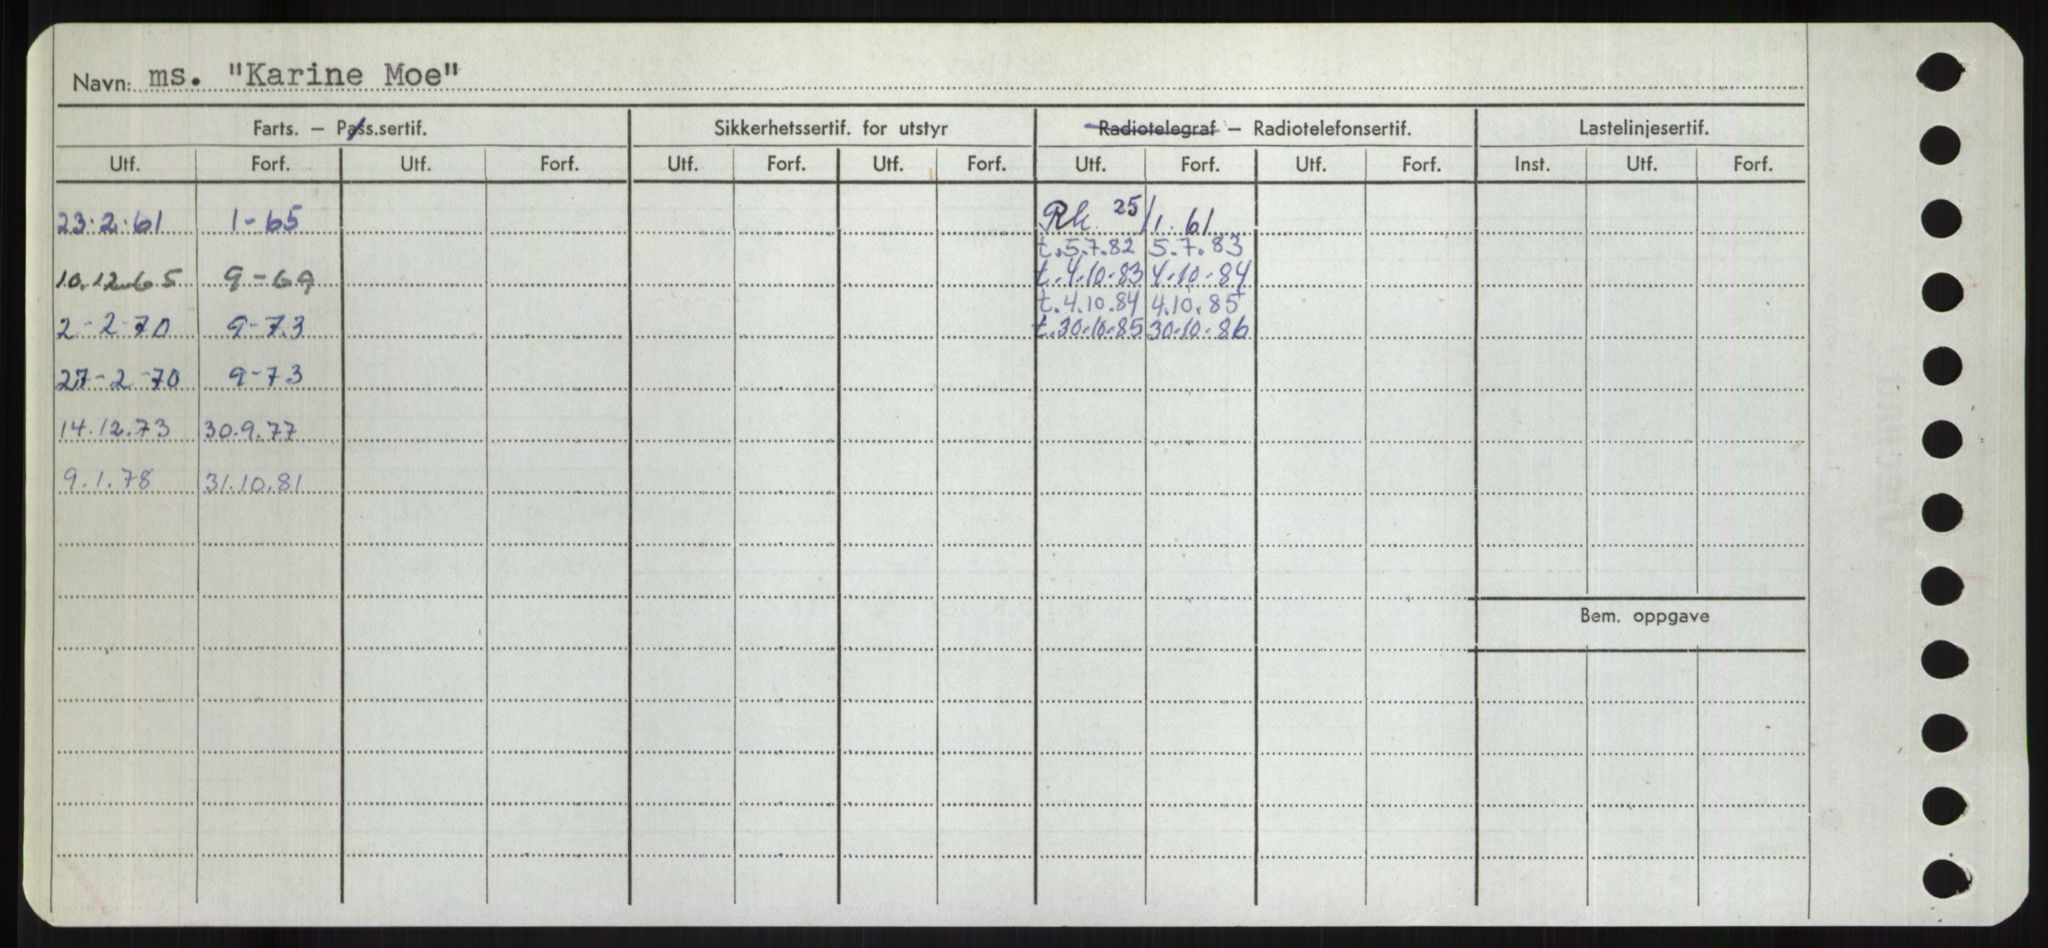 Navn: ms. "Karine Moe"
Farts. – Pass.sertif. Sikkerhetssertif. for utstyr Radiotelegraf – Radiotelefonsertif. Lastelinjesertif.
Utf. Forf. Utf. Forf. Utf. Forf. Utf. Forf. Utf. Forf. Utf. Forf. Inst. Utf. Forf.
23.2.61 1-65 Rk. 25/1.61
t.5.7.82 5.7.83
10.12.65 9-69 t.4.10.83 4.10.84
t.4.10.84 4.10.85
2-2-70 9-73 t.30.10.85 30.10.86
27-2-70 9-73
14.12.73 30.9.77
9.1.78 31.10.81
Bem. oppgave